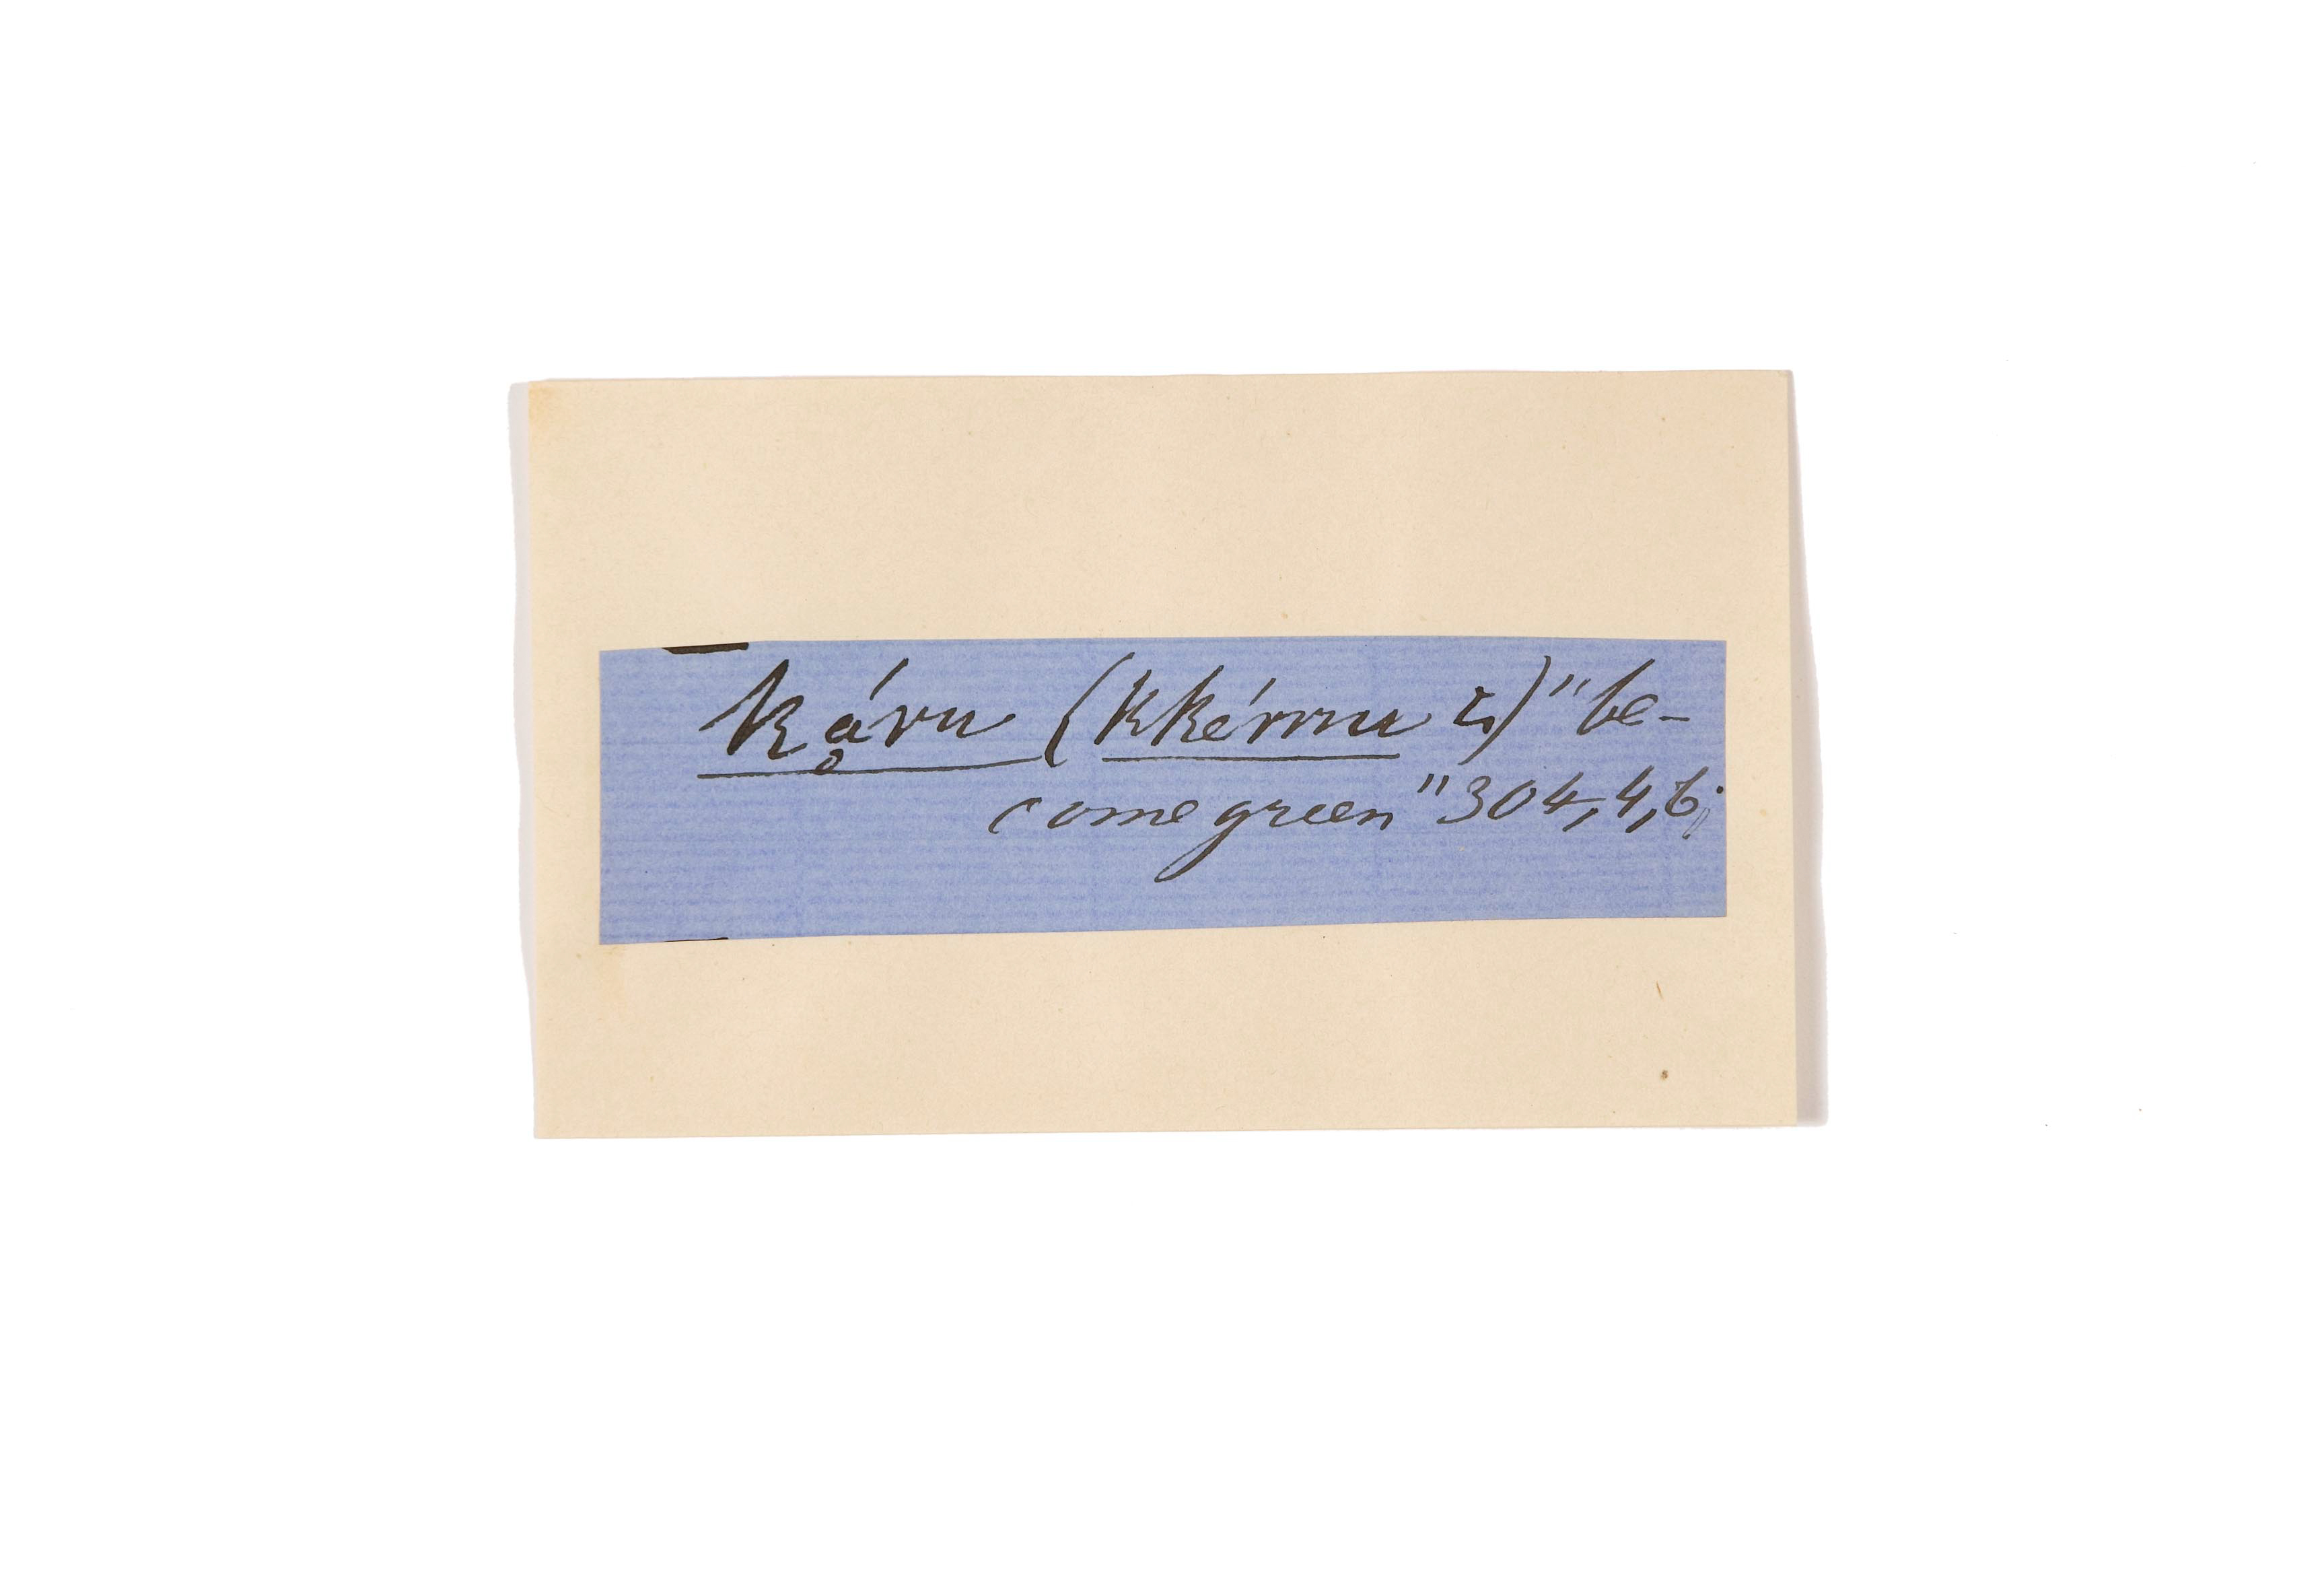 kḁ́ru (kkérru ꝛ,) "be-
come green" 304,4,6;